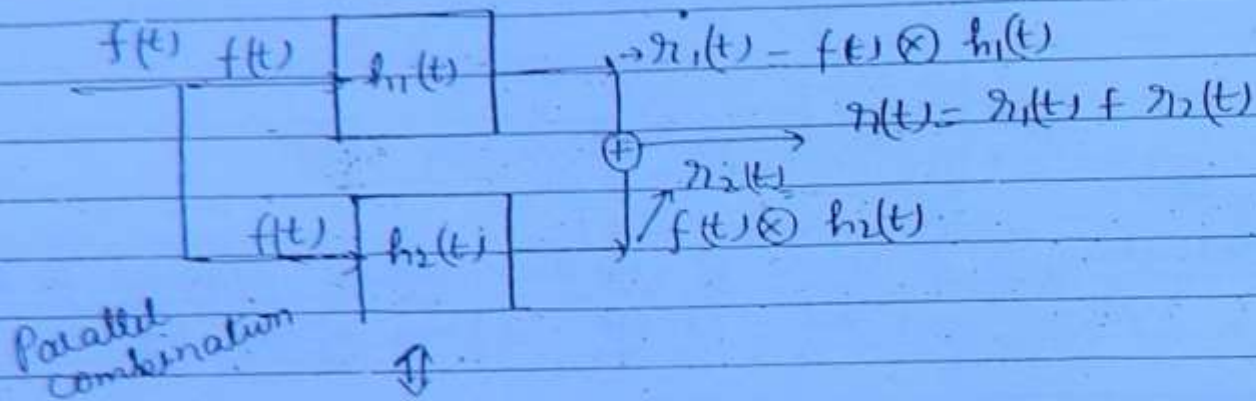 f(t) f(t) h1(t) → r1(t) = f(t) ⊗ h1(t)
r(t) = r1(t) + r2(t)
+
r2(t)
f(t) h2(t) f(t) ⊗ h2(t)
Parallel
combination
⇕